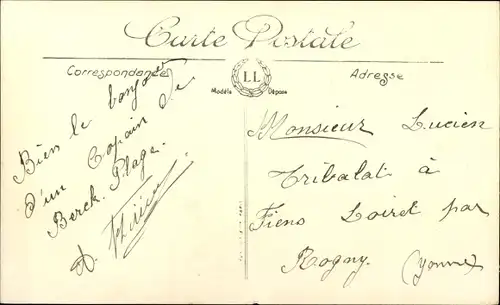 Carte Postale
Correspondance
LL
Modèle Déposé
Adresse
Bien le bonjour
d'un Copain de
Berck. Plage.
Monsieur Lucien
Tribalat à
Fiens Loiret par
Rogny. (Yonne)